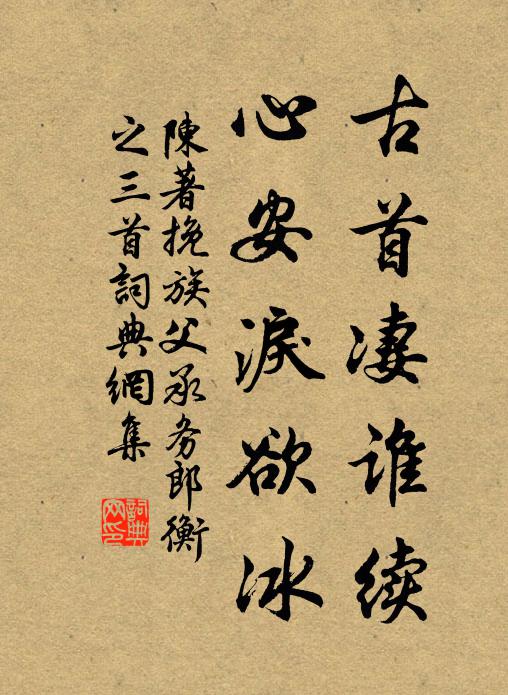 古首凄谁续
心安淚欲冰
陳著挽族父承务郎衡
之三首詞典網集
詞典網印